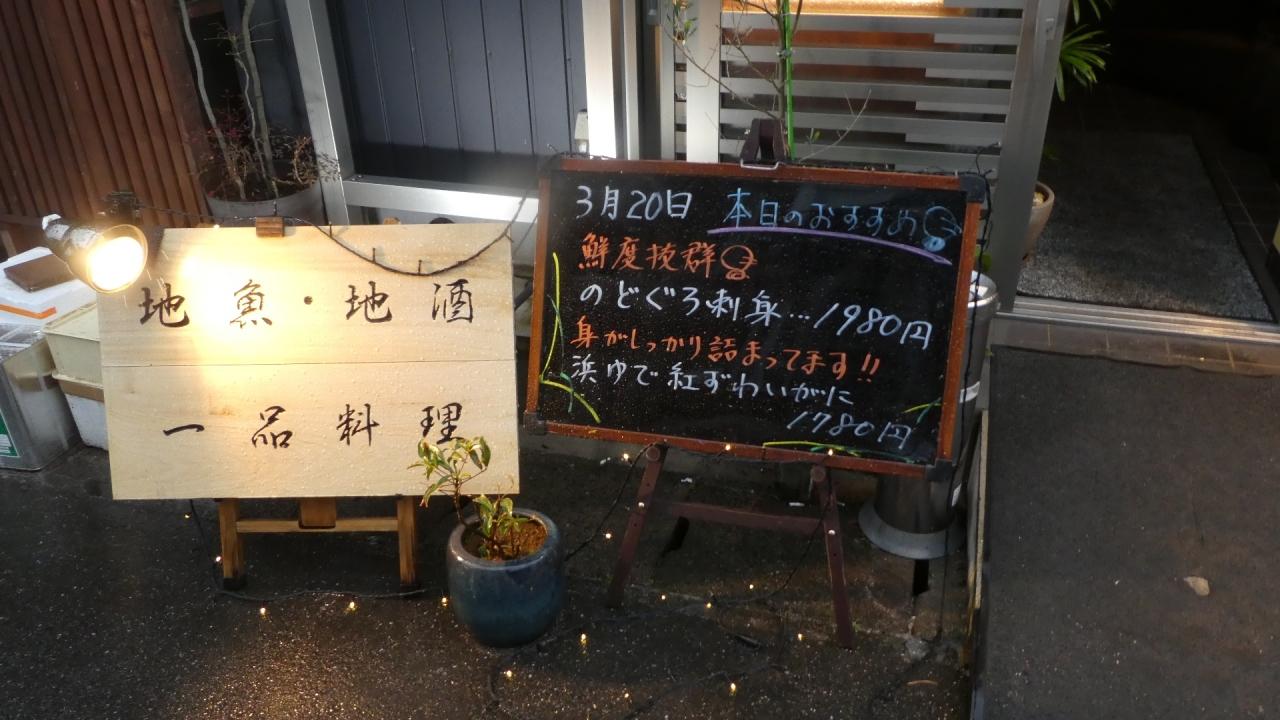 地魚・地酒
一品料理
3月20日 本日のおすすめ
鮮度抜群
のどぐろ刺身…1980円
身がしっかり詰まってます!!
浜ゆで紅ずわいがに
1780円